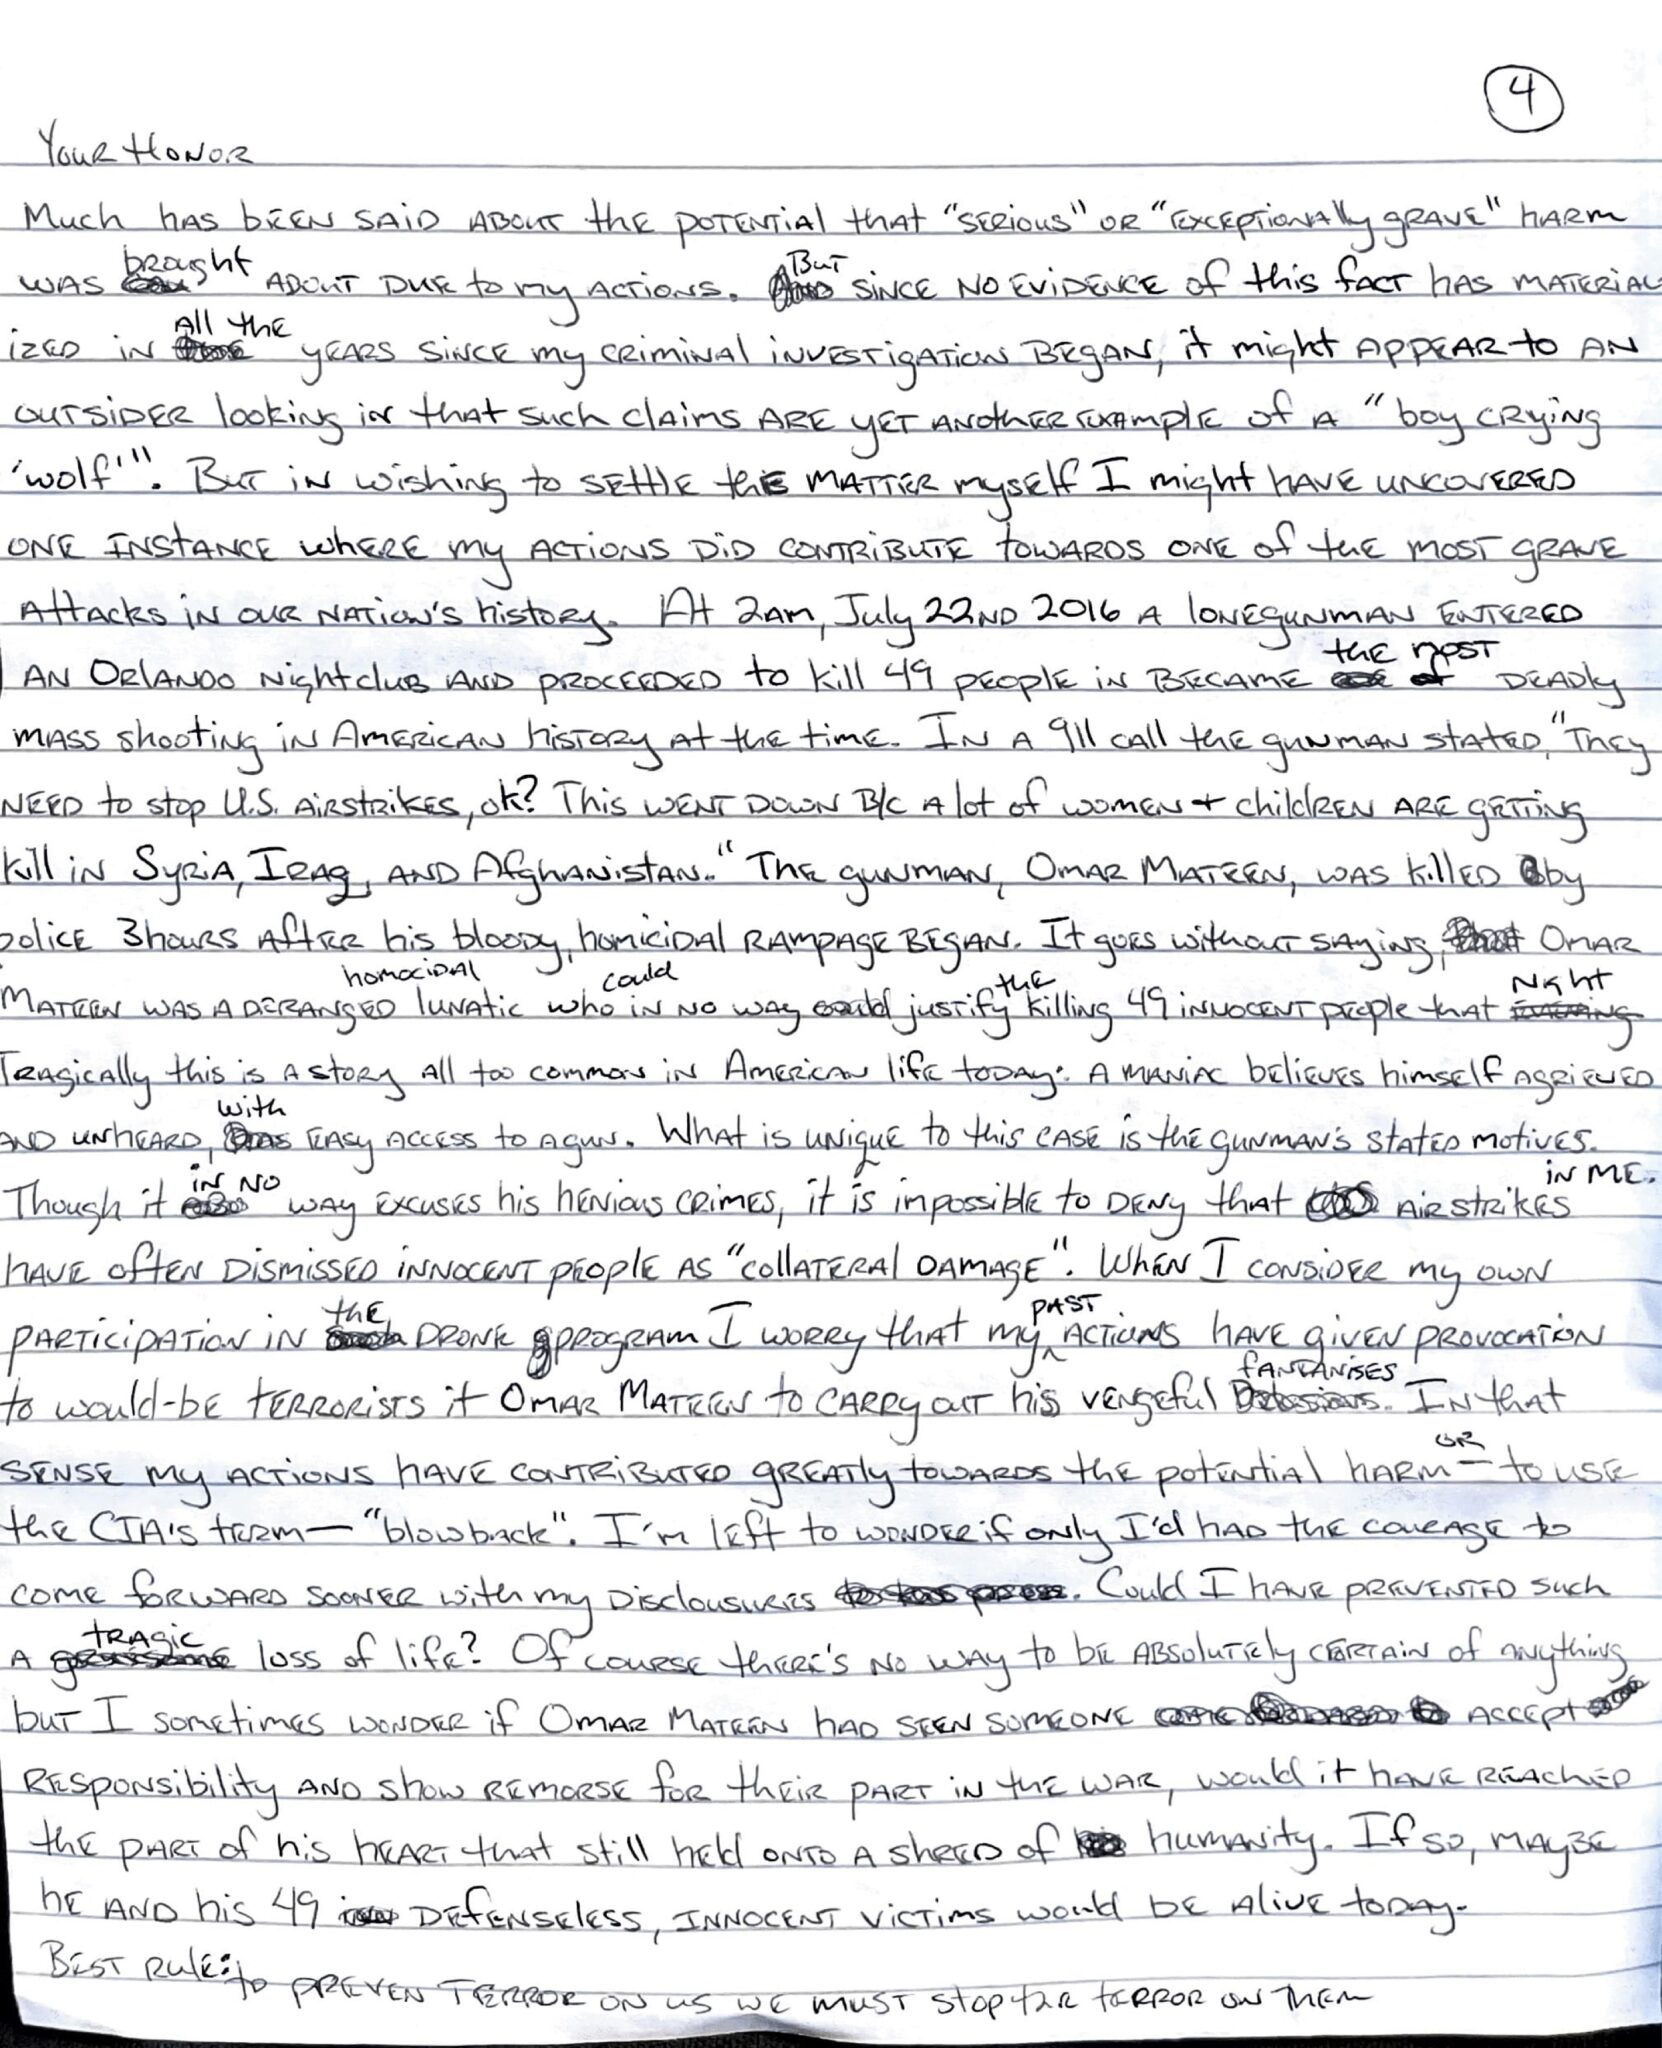 4
Your Honor
Much has been said about the potential that "serious" or "exceptionally grave" harm
was brought about due to my actions. But since no evidence of this fact has material-
ized in all the years since my criminal investigation began, it might appear to an
outsider looking in that such claims are yet another example of a "boy crying
'wolf'". But in wishing to settle this matter myself I might have uncovered
one instance where my actions did contribute towards one of the most grave
attacks in our nation's history. At 2am, July 22nd 2016 a lone gunman entered
an Orlando nightclub and proceeded to kill 49 people in became the most deadly
mass shooting in American history at the time. In a 911 call the gunman stated, "They
need to stop U.S. airstrikes, ok? This went down b/c a lot of women + children are getting
kill in Syria, Iraq, and Afghanistan." The gunman, Omar Mateen, was killed by
police 3 hours after his bloody, homicidal rampage began. It goes without saying, Omar
Mateen was a deranged homocidal lunatic who could in no way justify the killing 49 innocent people that night
Tragically this is a story all too common in American life today: a maniac believes himself agrieved
and unheard, with easy access to a gun. What is unique to this case is the gunman's stated motives.
Though it in no way excuses his henious crimes, it is impossible to deny that airstrikes in ME.
have often dismissed innocent people as "collateral damage". When I consider my own
participation in the drone program I worry that my past actions have given provocation
to would-be terrorists it Omar Mateen to carry out his vengeful fantanises. In that
sense my actions have contributed greatly towards the potential harm – or to use
the CIA's term — "blowback". I'm left to wonder if only I'd had the courage to
come forward sooner with my disclousuries. Could I have prevented such
a tragic loss of life? Of course there's no way to be absolutely certain of anything
but I sometimes wonder if Omar Mateen had seen someone accept
responsibility and show remorse for their part in the war, would it have reached
the part of his heart that still held onto a shred of humanity. If so, maybe
he and his 49 defenseless, innocent victims would be alive today.
Best rule: to preven terror on us we must stop the terror on them